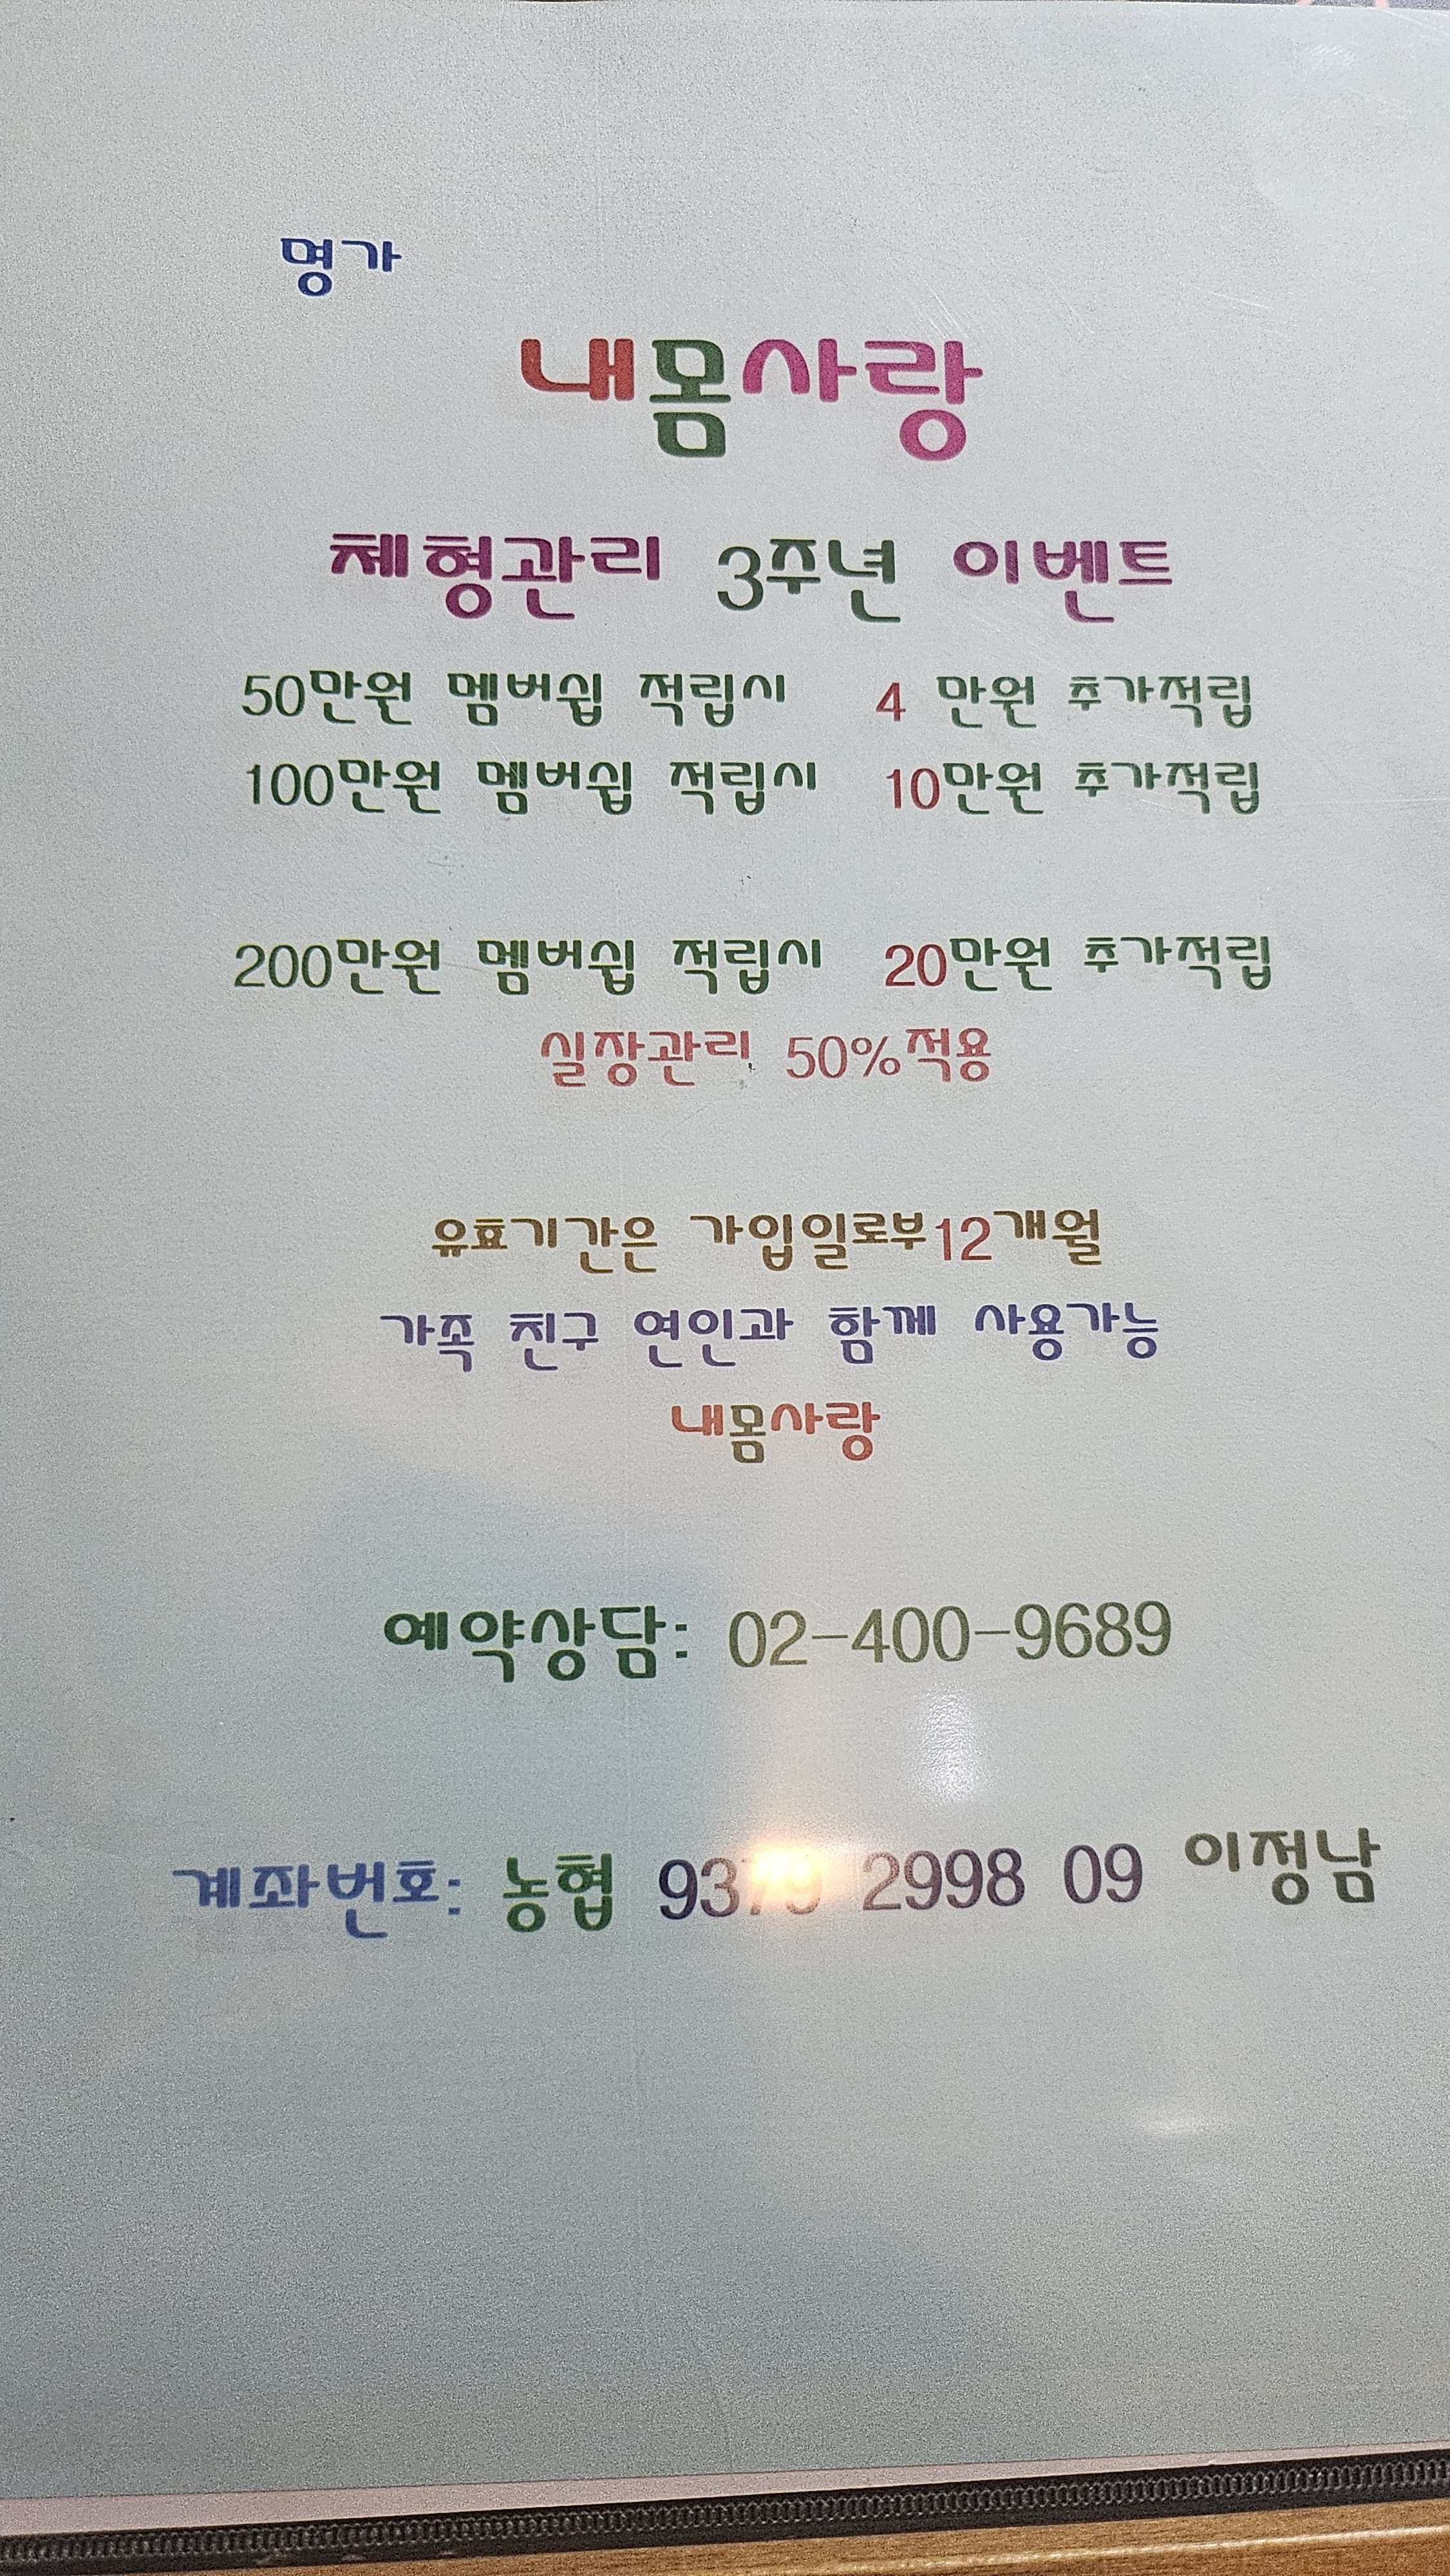 명가
내몸사랑
체형관리 3주년 이벤트
50만원 멤버쉽 적립시 4 만원 추가적립
100만원 멤버쉽 적립시 10만원 추가적립
200만원 멤버쉽 적립시 20만원 추가적립
실장관리 50%적용
유효기간은 가입일로부12개월
가족 친구 연인과 함께 사용가능
내몸사랑
예약상담: 02-400-9689
계좌번호: 농협 2998 09 이정남